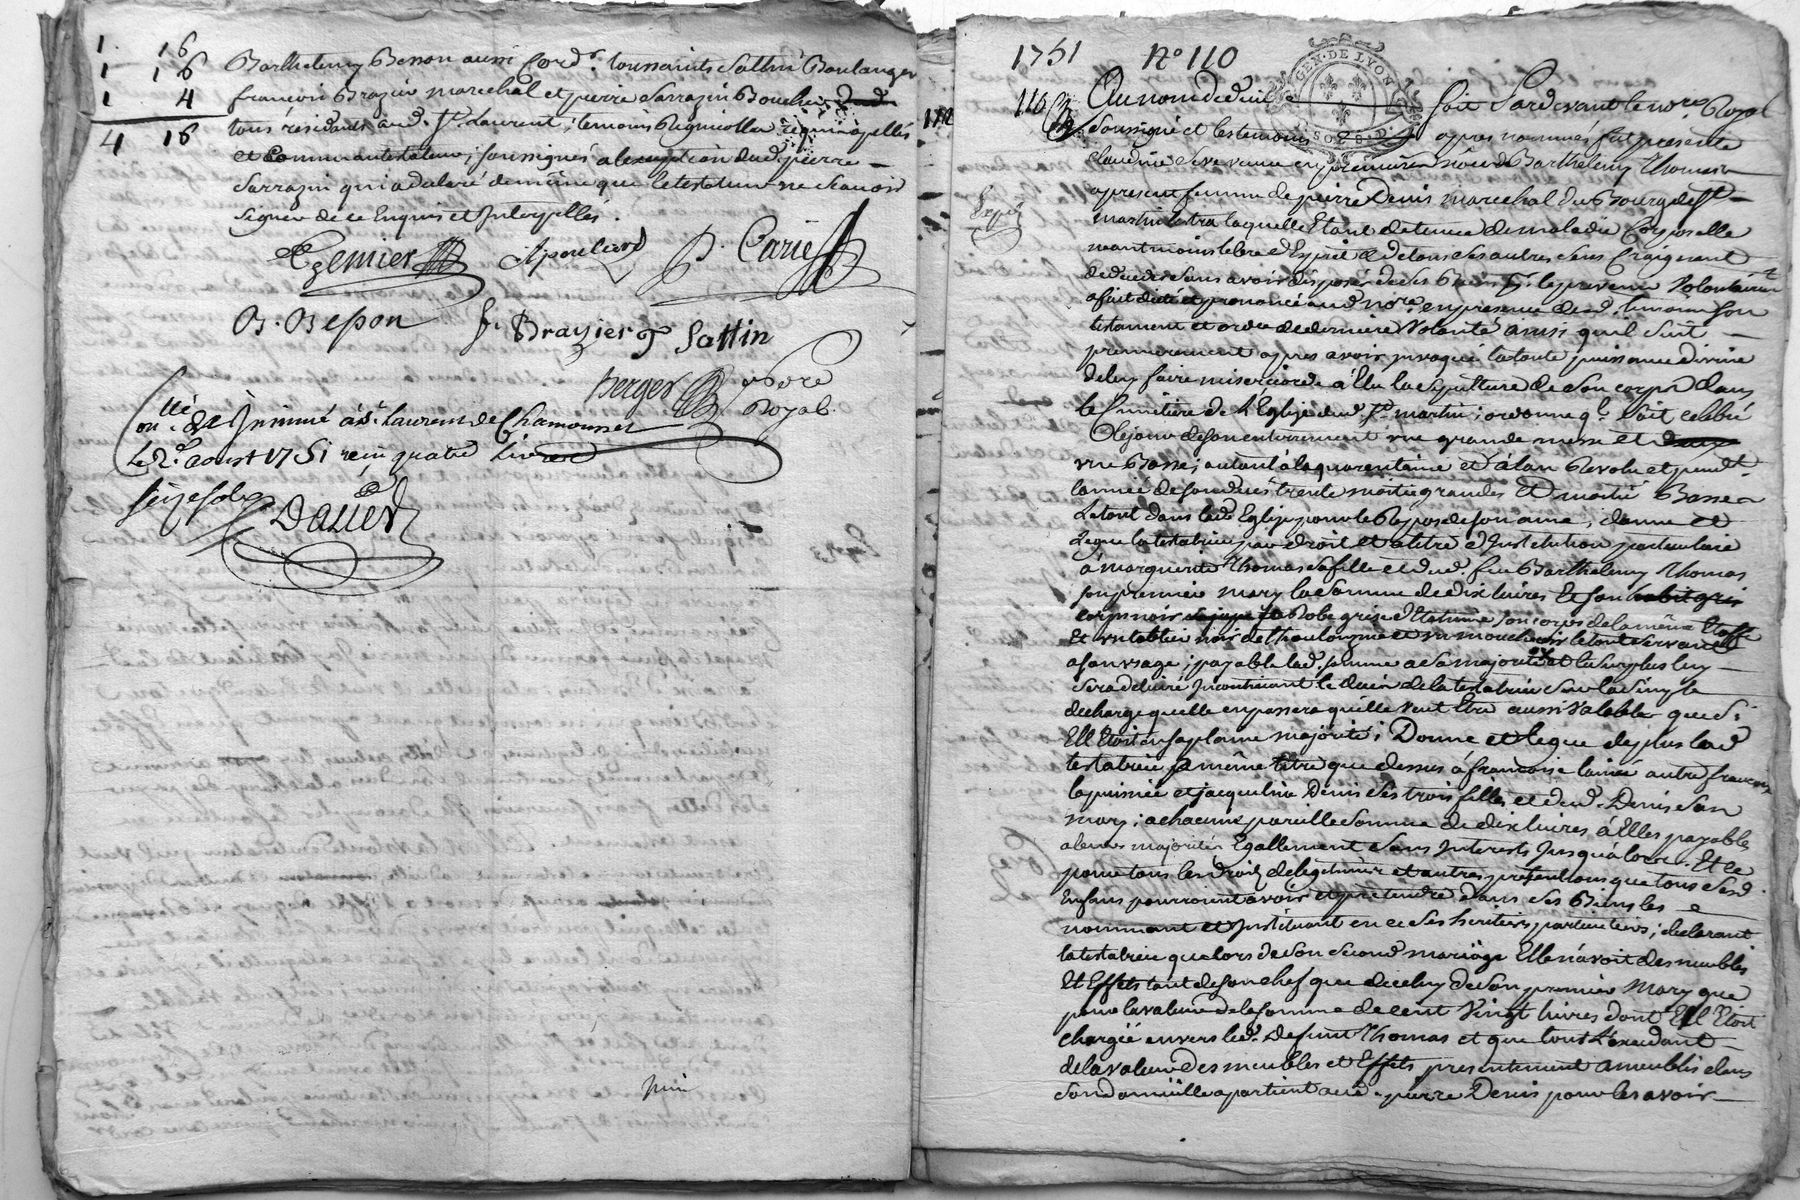 1. 16
1 16
1 4
4 16
Barthelemy Besson aussi Cord.r toussaints Sattin Boulanger
françois Brazier marechal et pierre Sarrazin Boucher
tous résidants aud. St. Laurent, temoins
et Connnus testateur, soussignés a lexception dud. pierre
Sarrazin qui a declaré de même que le testateur ne scavoir
signer de ce Enquis et Interpellés.
P. Carie
B. Besson f. Brazier Sattin
Berger nore
Royal.
à St. Laurens de Chamousset
Le 2.e aoust 1751 reçu quatre livres
seize sols
1751 No 110
GEN. DE LYON
116 Au nom de dieu soit Pardevant le nore. Royal
Soussigné et les temoins apres nommés fut presente
claudine veuve en premieres nôces de Barthelemy Thomas
apresent femme de pierre Denis marechal du Bourg de St.
martin laquelle Etant detenue de maladie Corporelle
neantmoins libre d'Esprit & de tous ses autres sens Craignant
de deceder sans avoir disposé de ses Biens
a fait dicté et prononcé aud. nore. en presence desd. temoins son
testament et ordre de derniere volonté ainsi quil suit
premierement apres avoir invoqué la toute puissance divine
de luy faire misericorde a Elu la sepulture de son corps dans
le Cimitiere de l'Eglise dud. St. martin; ordonne q.l soit celebré
le jour de son enterrement une grande messe et
une Basse; autant à la quarentaine et à l'an Revolu et pend.t
l'année de son deces trente moitié grandes et moitié Basses
Le tout dans lad. Eglise pour le Repos de son ame; donne et
Legue la testatrice par droit et à titre d'Institution particulaire
à marguerite Thomas sa fille et dud. feu Barthelemy Thomas
son premier mary la somme de dix livres et son habit gris
corps noir Robe grise d'Etamine son corps de la même Etoffe
Et un tablier noir de et un mouchoir le tout servant
a son usage; payable lad. somme a sa majorité et le surplus luy
sera delivré Incontinant le deces de la testatrice sur la simple
decharge quelle en passera quelle veut Etre aussi valable que si
Ell Etoit en sa plaine majorité; Donne et legue de plus lad.
testatrice à même titre que dessus a francoise lainée autre francoise
la puisnée et jacqueline Denis ses trois filles et dud. Denis son
mary; a chacune pareille somme de dix livres à Elles payable
a leurs majorités Egallement sans Interests Jusqu'a lors. Et ce
pour tous les Droits de legitimes et autres prétentions que tous sesd.
Enfans pourroient avoir et pretendre dans ses Biens les
nommant et Instituant en ce ses heritiers particuliers; declarant
la testatrice que lors de son second mariage Elle n'avoit des meubles
Et Effets tant de son chef que de celuy de son premier Mary que
pour la valeur de la somme de cent vingt livres dont Ell' Etoit
chargée envers led. Defunt Thomas et que tout l'excedant
de la valeur des meubles et Effets presentement a meublés dans
son domicille apartient aud. pierre Denis pour les avoir